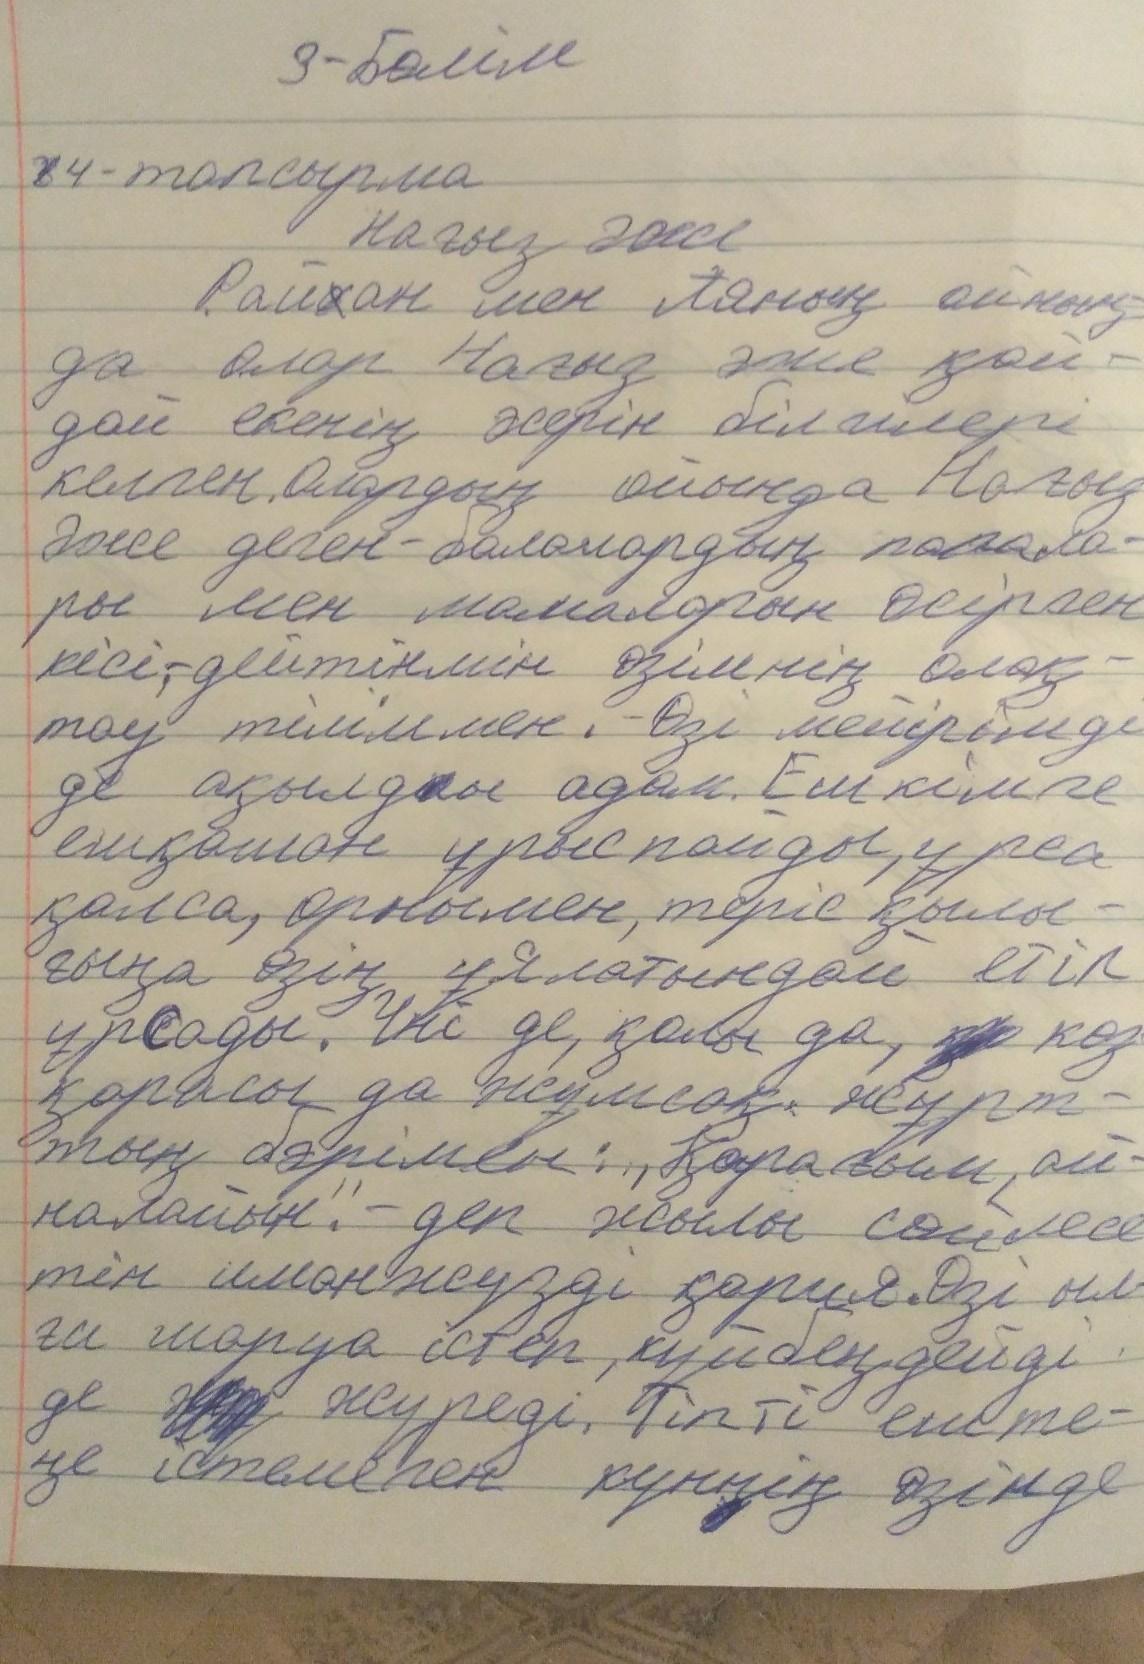 3-Бөлім
4-тапсырма
Нағыз әже
Райхан мен Ляның ойының-
да олар Нағыз әже қай-
дай екенің жерін білгілері
келген. Олардың ойында Нағыз
Әже деген-балалардың папала-
ры мен мамаларын өсірген
кісі,-дейтінмін өзімнің олақ-
тау тіліммен. -Өзі мейірімді
де ақылды адам. Ешкімге
ешқашан ұрыспайды, ұрса
қалса, орнымен, теріс қылы-
ғыңа өзің ұялатындай етіп
ұрсады. Үні де, қолы да, көз
қарасы да жұмсақ. Жұрт-
тың бәрімен: „Қарағым, ай-
налайын". - деп жылы сөйлесе
тін иманжүзді қария. Өзі ыл-
ғи шаруа істеп, күйбеңдейді
де жүреді. Тіпті ештe-
ңе істемеген күннің өзінде